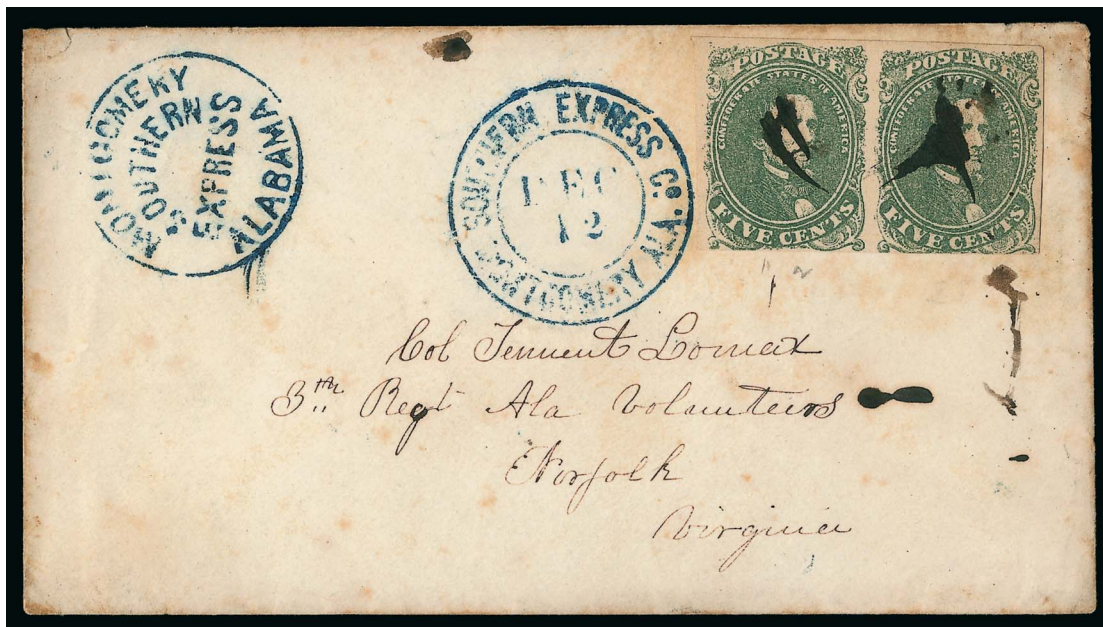 MONTGOMERY
SOUTHERN
EXPRESS
ALABAMA
SOUTHERN EXPRESS Co.
DEC
12
MONTGOMERY ALA.
POSTAGE
CONFEDERATE STATES OF AMERICA
FIVE CENTS
POSTAGE
CONFEDERATE STATES OF AMERICA
FIVE CENTS
Col Tennent Lomax
3th Regt Ala Volunteers
Norfolk
Virginia